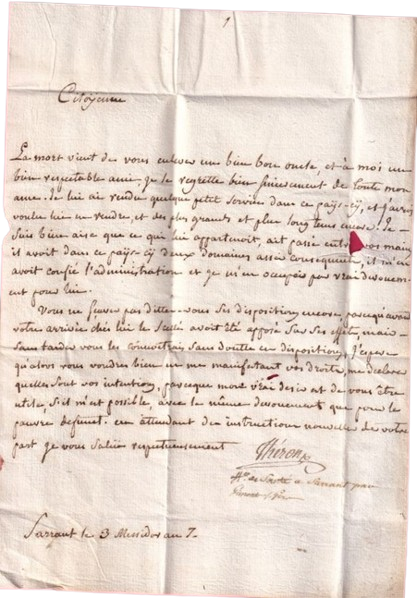 Citoyenne
La mort vient de vous enlever un bien bon oncle, et à moi un
bien respectable ami, je le regrette bien sincerement de toute mon
ame. Je lui ai rendu quelque petit service dans ce païs-cÿ, et j'aurois
voulu lui en rendre, et des plus grands et plus long tems encore. Je
suis bien aise que ce qui lui appartenoit, ait passé entre vos mains
il avoit dans ce païs-cÿ deux domaines assés consequents, il m'en
avoit confié l'administration et je m'en occupois par vrai devouement
pour lui.
Vous ne savez pas dittes-vous ses disposition encore parcequ'avant
votre arrivée chés lui le scellé avoit été apposé sur ses effets, mais
sans tarder vous les connoitrai sans doutte ces disposition, J'espere
qu'alors vous voudres bien en me manifestant vos droits, me declarer
quelles sont vos intention, parceque mon vrai desir est de vous être
utile, s'il m'est possible, avec le même devouement que pour le
pauvre defunct. en attendant des instructions nouvelle de votre
part je vous salue respectueusement
Théron
de Santé a Sarrant par
Sarrant le 3 Messidor an 7.